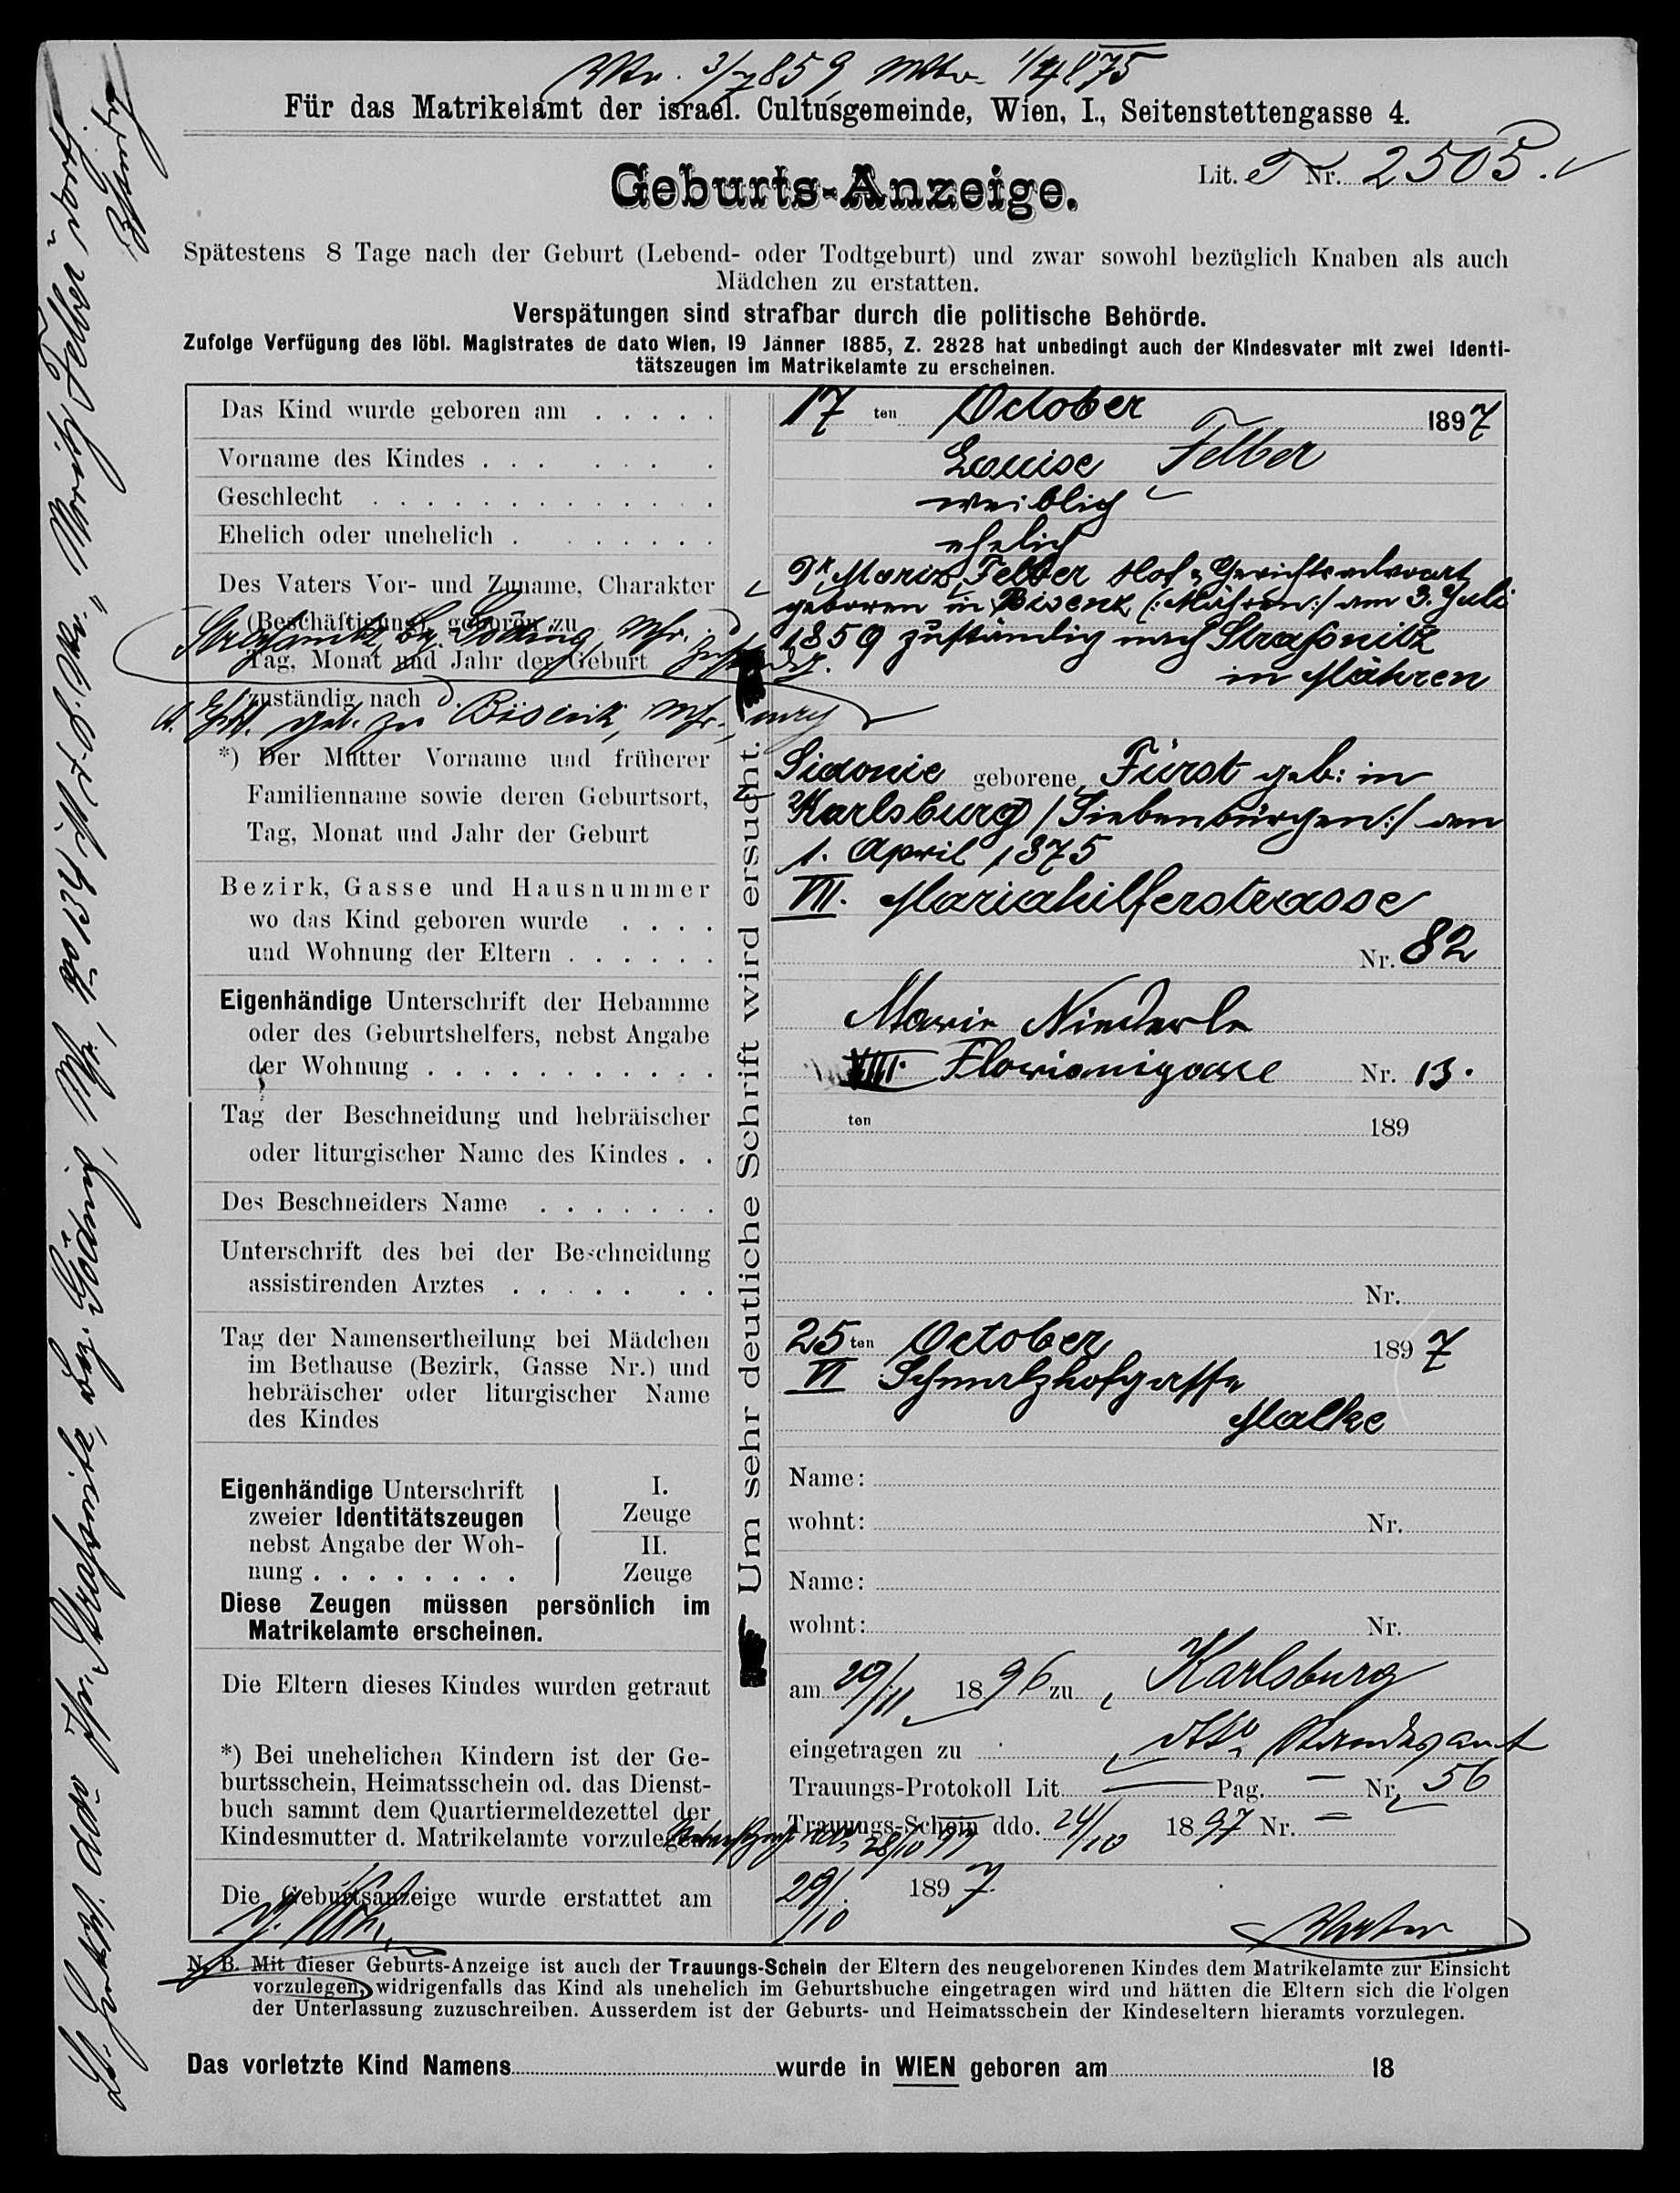 3/7 859, 1/4 875
Für das Matrikelamt der israel. Cultusgemeinde, Wien, I., Seitenstettengasse 4.
Lit. Nr. 2505.
Geburts-Anzeige.
Spätestens 8 Tage nach der Geburt (Lebend- oder Todtgeburt) und zwar sowohl bezüglich Knaben als auch
Mädchen zu erstatten.
Verspätungen sind strafbar durch die politische Behörde.
Zufolge Verfügung des löbl. Magistrates de dato Wien, 19 Jänner 1885, Z. 2828 hat unbedingt auch der Kindesvater mit zwei Identi-
tätszeugen im Matrikelamte zu erscheinen.
Das Kind wurde geboren am
17 ten October 1897
Vorname des Kindes
Louise Felber
Geschlecht
weiblich
Ehelich oder unehelich
ehelich
Des Vaters Vor- und Zuname, Charakter
(Beschäftigung), geboren zu
Tag, Monat und Jahr der Geburt
zuständig nach
Dr. Moriz Felber Hof & Gerichtsadvocat
geboren in Bisenz (:Mähren:) am 3. Juli
1859 zuständig nach Straßnitz
in Mähren
geb. zu Bisenz, Mhr.,
*) Der Mutter Vorname und früherer
Familienname sowie deren Geburtsort,
Tag, Monat und Jahr der Geburt
Sidonie geborene Fürst geb: in
Karlsburg /Siebenbürgen:/ am
1. April 1875
Bezirk, Gasse und Hausnummer
wo das Kind geboren wurde
und Wohnung der Eltern
VII. Mariahilferstrasse
Nr. 82
Eigenhändige Unterschrift der Hebamme
oder des Geburtshelfers, nebst Angabe
der Wohnung
Marie Niederle
VIII. Florianigasse Nr. 13.
Tag der Beschneidung und hebräischer
oder liturgischer Name des Kindes
ten 189
Des Beschneiders Name
Unterschrift des bei der Beschneidung
assistirenden Arztes
Nr.
Tag der Namensertheilung bei Mädchen
im Bethause (Bezirk, Gasse Nr.) und
hebräischer oder liturgischer Name
des Kindes
25 ten October 1897
VI Schmalzhofgasse
Malke
Um sehr deutliche Schrift wird ersucht.
Eigenhändige Unterschrift
zweier Identitätszeugen
nebst Angabe der Woh-
nung
I.
Zeuge
II.
Zeuge
Diese Zeugen müssen persönlich im
Matrikelamte erscheinen.
Name:
wohnt: Nr.
Name:
wohnt: Nr.
Die Eltern dieses Kindes wurden getraut
am 29/11 1896 zu Karlsburg
eingetragen zu Standesamt
Trauungs-Protokoll Lit. Pag. Nr. 56
Trauungs-Schein ddo. 24/10 1897 Nr.
28/10 97
*) Bei unehelichen Kindern ist der Ge-
burtsschein, Heimatsschein od. das Dienst-
buch sammt dem Quartiermeldezettel der
Kindesmutter d. Matrikelamte vorzulegen.
Die Geburtsanzeige wurde erstattet am
29/10 1897
N. B. Mit dieser Geburts-Anzeige ist auch der Trauungs-Schein der Eltern des neugeborenen Kindes dem Matrikelamte zur Einsicht
vorzulegen, widrigenfalls das Kind als unehelich im Geburtsbuche eingetragen wird und hätten die Eltern sich die Folgen
der Unterlassung zuzuschreiben. Ausserdem ist der Geburts- und Heimatsschein der Kindeseltern hieramts vorzulegen.
Das vorletzte Kind Namens wurde in WIEN geboren am 18